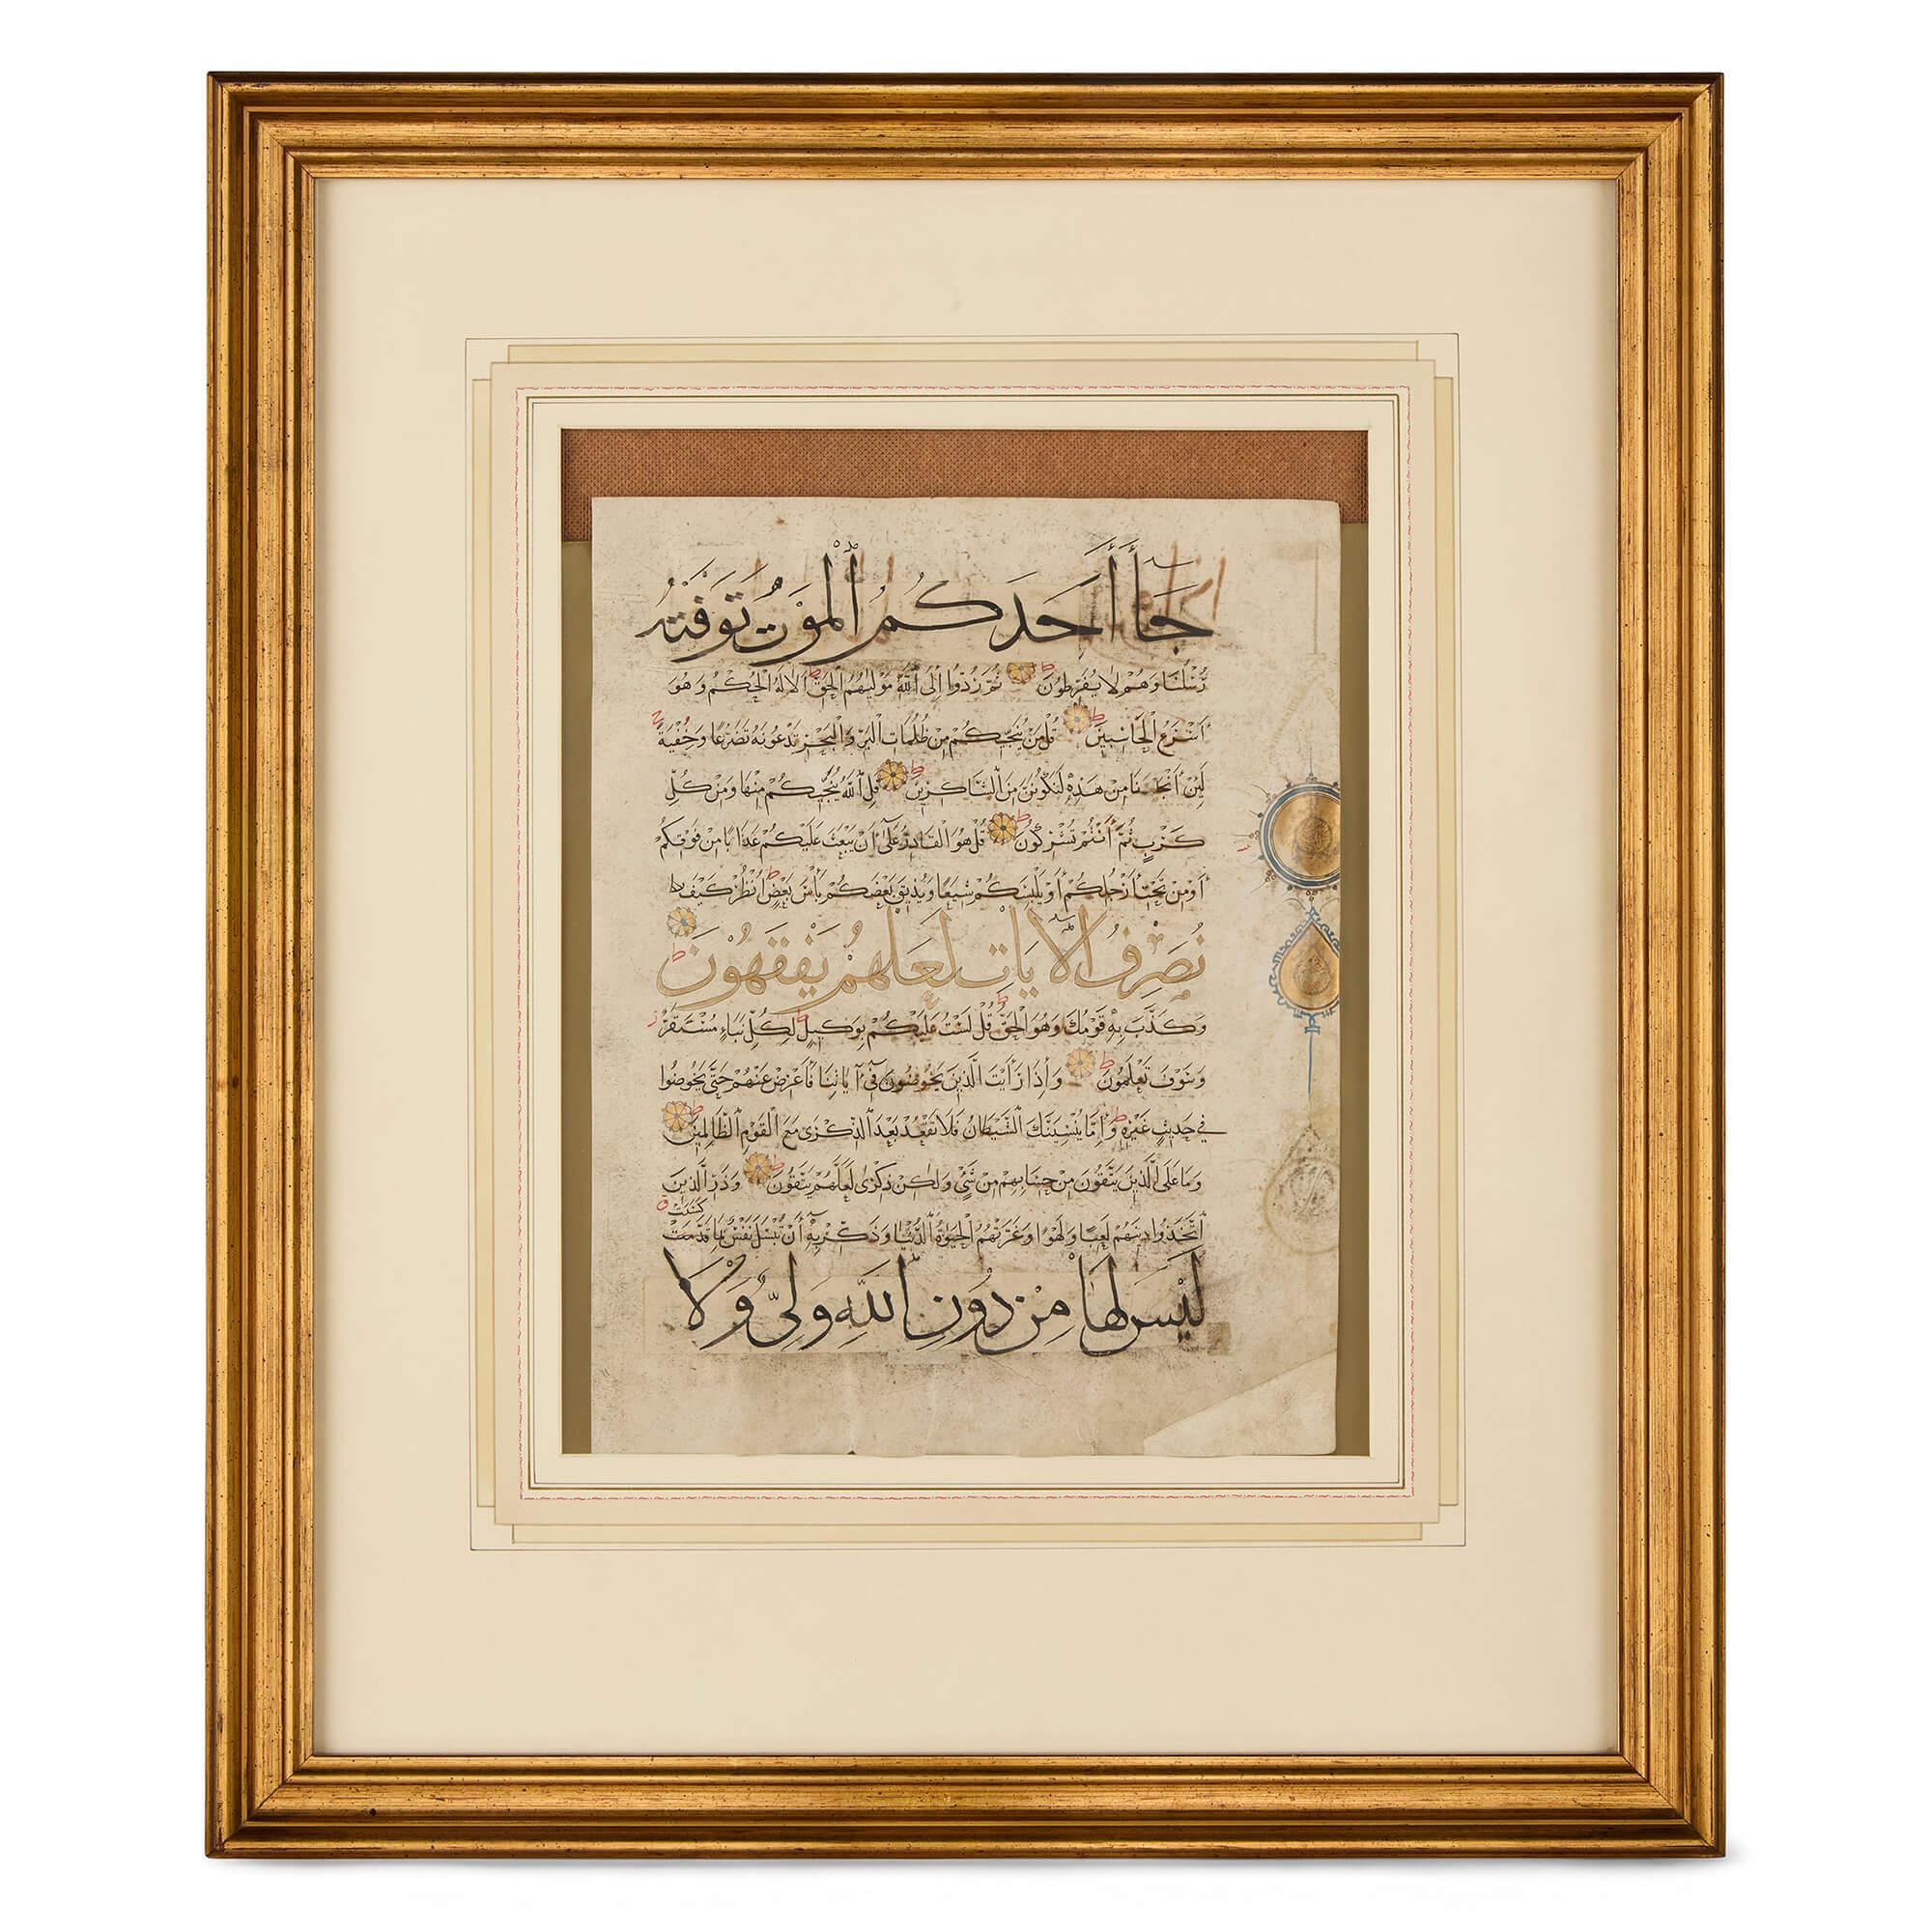 جَآءَ أَحَدَكُمُ ٱلْمَوْتُ تَوَفَّتْهُ
رُسُلُنَا وَهُمْ لَا يُفَرِّطُونَ ثُمَّ رُدُّوا إِلَى ٱللَّهِ مَوْلَيٰهُمُ الْحَقِّ أَلَا لَهُ الْحُكْمُ وَهُوَ
أَسْرَعُ الْحَاسِبِينَ قُلْ مَنْ يُنَجِّيكُمْ مِنْ ظُلُمَاتِ الْبَرِّ وَالْبَحْرِ تَدْعُونَهُ تَضَرُّعًا وَخُفْيَةً
لَئِنْ أَنْجَانَا مِنْ هَذِهِ لَنَكُونَنَّ مِنَ الشَّاكِرِينَ قُلِ ٱللَّهُ يُنَجِّيكُمْ مِنْهَا وَمِنْ كُلِّ
كَرْبٍ ثُمَّ أَنْتُمْ تُشْرِكُونَ قُلْ هُوَ الْقَادِرُ عَلَىٰ أَنْ يَبْعَثَ عَلَيْكُمْ عَذَابًا مِنْ فَوْقِكُمْ
أَوْ مِنْ تَحْتِ أَرْجُلِكُمْ أَوْ يَلْبِسَكُمْ شِيَعًا وَيُذِيقَ بَعْضَكُمْ بَأْسَ بَعْضٍ انْظُرْ كَيْفَ
نُصَرِّفُ الْآيَاتِ لَعَلَّهُمْ يَفْقَهُونَ
وَكَذَّبَ بِهِ قَوْمُكَ وَهُوَ الْحَقُّ قُلْ لَسْتُ عَلَيْكُمْ بِوَكِيلٍ لِكُلِّ نَبَإٍ مُسْتَقَرٌّ
وَسَوْفَ تَعْلَمُونَ وَإِذَا رَأَيْتَ الَّذِينَ يَخُوضُونَ فِي آيَاتِنَا فَأَعْرِضْ عَنْهُمْ حَتَّى يَخُوضُوا
فِي حَدِيثٍ غَيْرِهِ وَإِمَّا يُنْسِيَنَّكَ الشَّيْطَانُ فَلَا تَقْعُدْ بَعْدَ الذِّكْرَى مَعَ الْقَوْمِ الظَّالِمِينَ
وَمَا عَلَى الَّذِينَ يَتَّقُونَ مِنْ حِسَابِهِمْ مِنْ شَيْءٍ وَلَكِنْ ذِكْرَى لَعَلَّهُمْ يَتَّقُونَ وَذَرِ الَّذِينَ
كَسَبَتْ
اتَّخَذُوا دِينَهُمْ لَعِبًا وَلَهْوًا وَغَرَّتْهُمُ الْحَيٰوةُ الدُّنْيَا وَذَكِّرْ بِهِ أَنْ تُبْسَلَ نَفْسٌ بِمَا قَدَّمَتْ
لَيْسَ لَهَا مِنْ دُونِ اللَّهِ وَلِيٌّ وَلَا